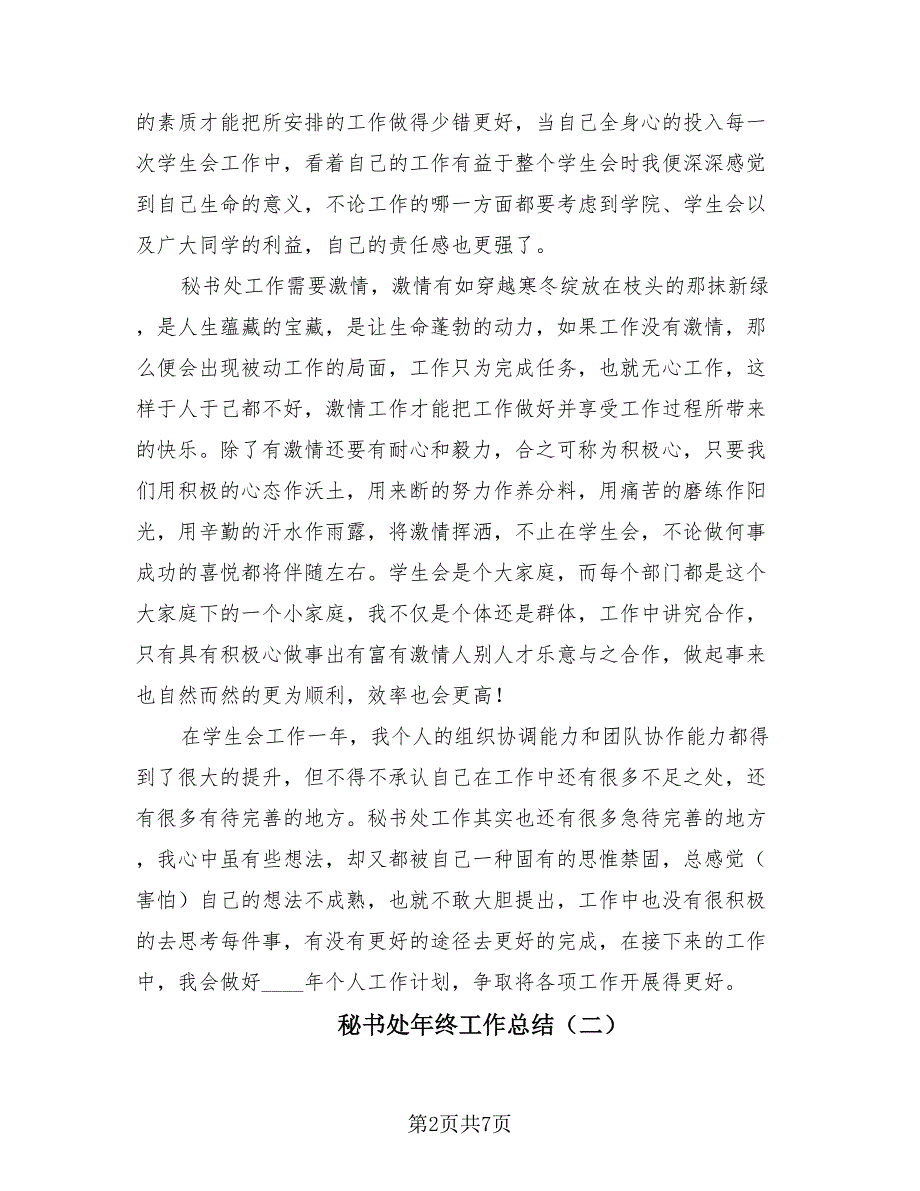 的素质才能把所安排的工作做得少错更好，当自己全身心的投入每一
次学生会工作中，看着自己的工作有益于整个学生会时我便深深感觉
到自己生命的意义，不论工作的哪一方面都要考虑到学院、学生会以
及广大同学的利益，自己的责任感也更强了。
秘书处工作需要激情，激情有如穿越寒冬绽放在枝头的那抹新绿
，是人生蕴藏的宝藏，是让生命蓬勃的动力，如果工作没有激情，那
么便会出现被动工作的局面，工作只为完成任务，也就无心工作，这
样于人于己都不好，激情工作才能把工作做好并享受工作过程所带来
的快乐。除了有激情还要有耐心和毅力，合之可称为积极心，只要我
们用积极的心态作沃土，用来断的努力作养分料，用痛苦的磨练作阳
光，用辛勤的汗水作雨露，将激情挥洒，不止在学生会，不论做何事
成功的喜悦都将伴随左右。学生会是个大家庭，而每个部门都是这个
大家庭下的一个小家庭，我不仅是个体还是群体，工作中讲究合作，
只有具有积极心做事出有富有激情人别人才乐意与之合作，做起事来
也自然而然的更为顺利，效率也会更高！
在学生会工作一年，我个人的组织协调能力和团队协作能力都得
到了很大的提升，但不得不承认自己在工作中还有很多不足之处，还
有很多有待完善的地方。秘书处工作其实也还有很多急待完善的地方
，我心中虽有些想法，却又都被自己一种固有的思惟禁固，总感觉（
害怕）自己的想法不成熟，也就不敢大胆提出，工作中也没有很积极
的去思考每件事，有没有更好的途径去更好的完成，在接下来的工作
中，我会做好____年个人工作计划，争取将各项工作开展得更好。
秘书处年终工作总结（二）
第2页共7页